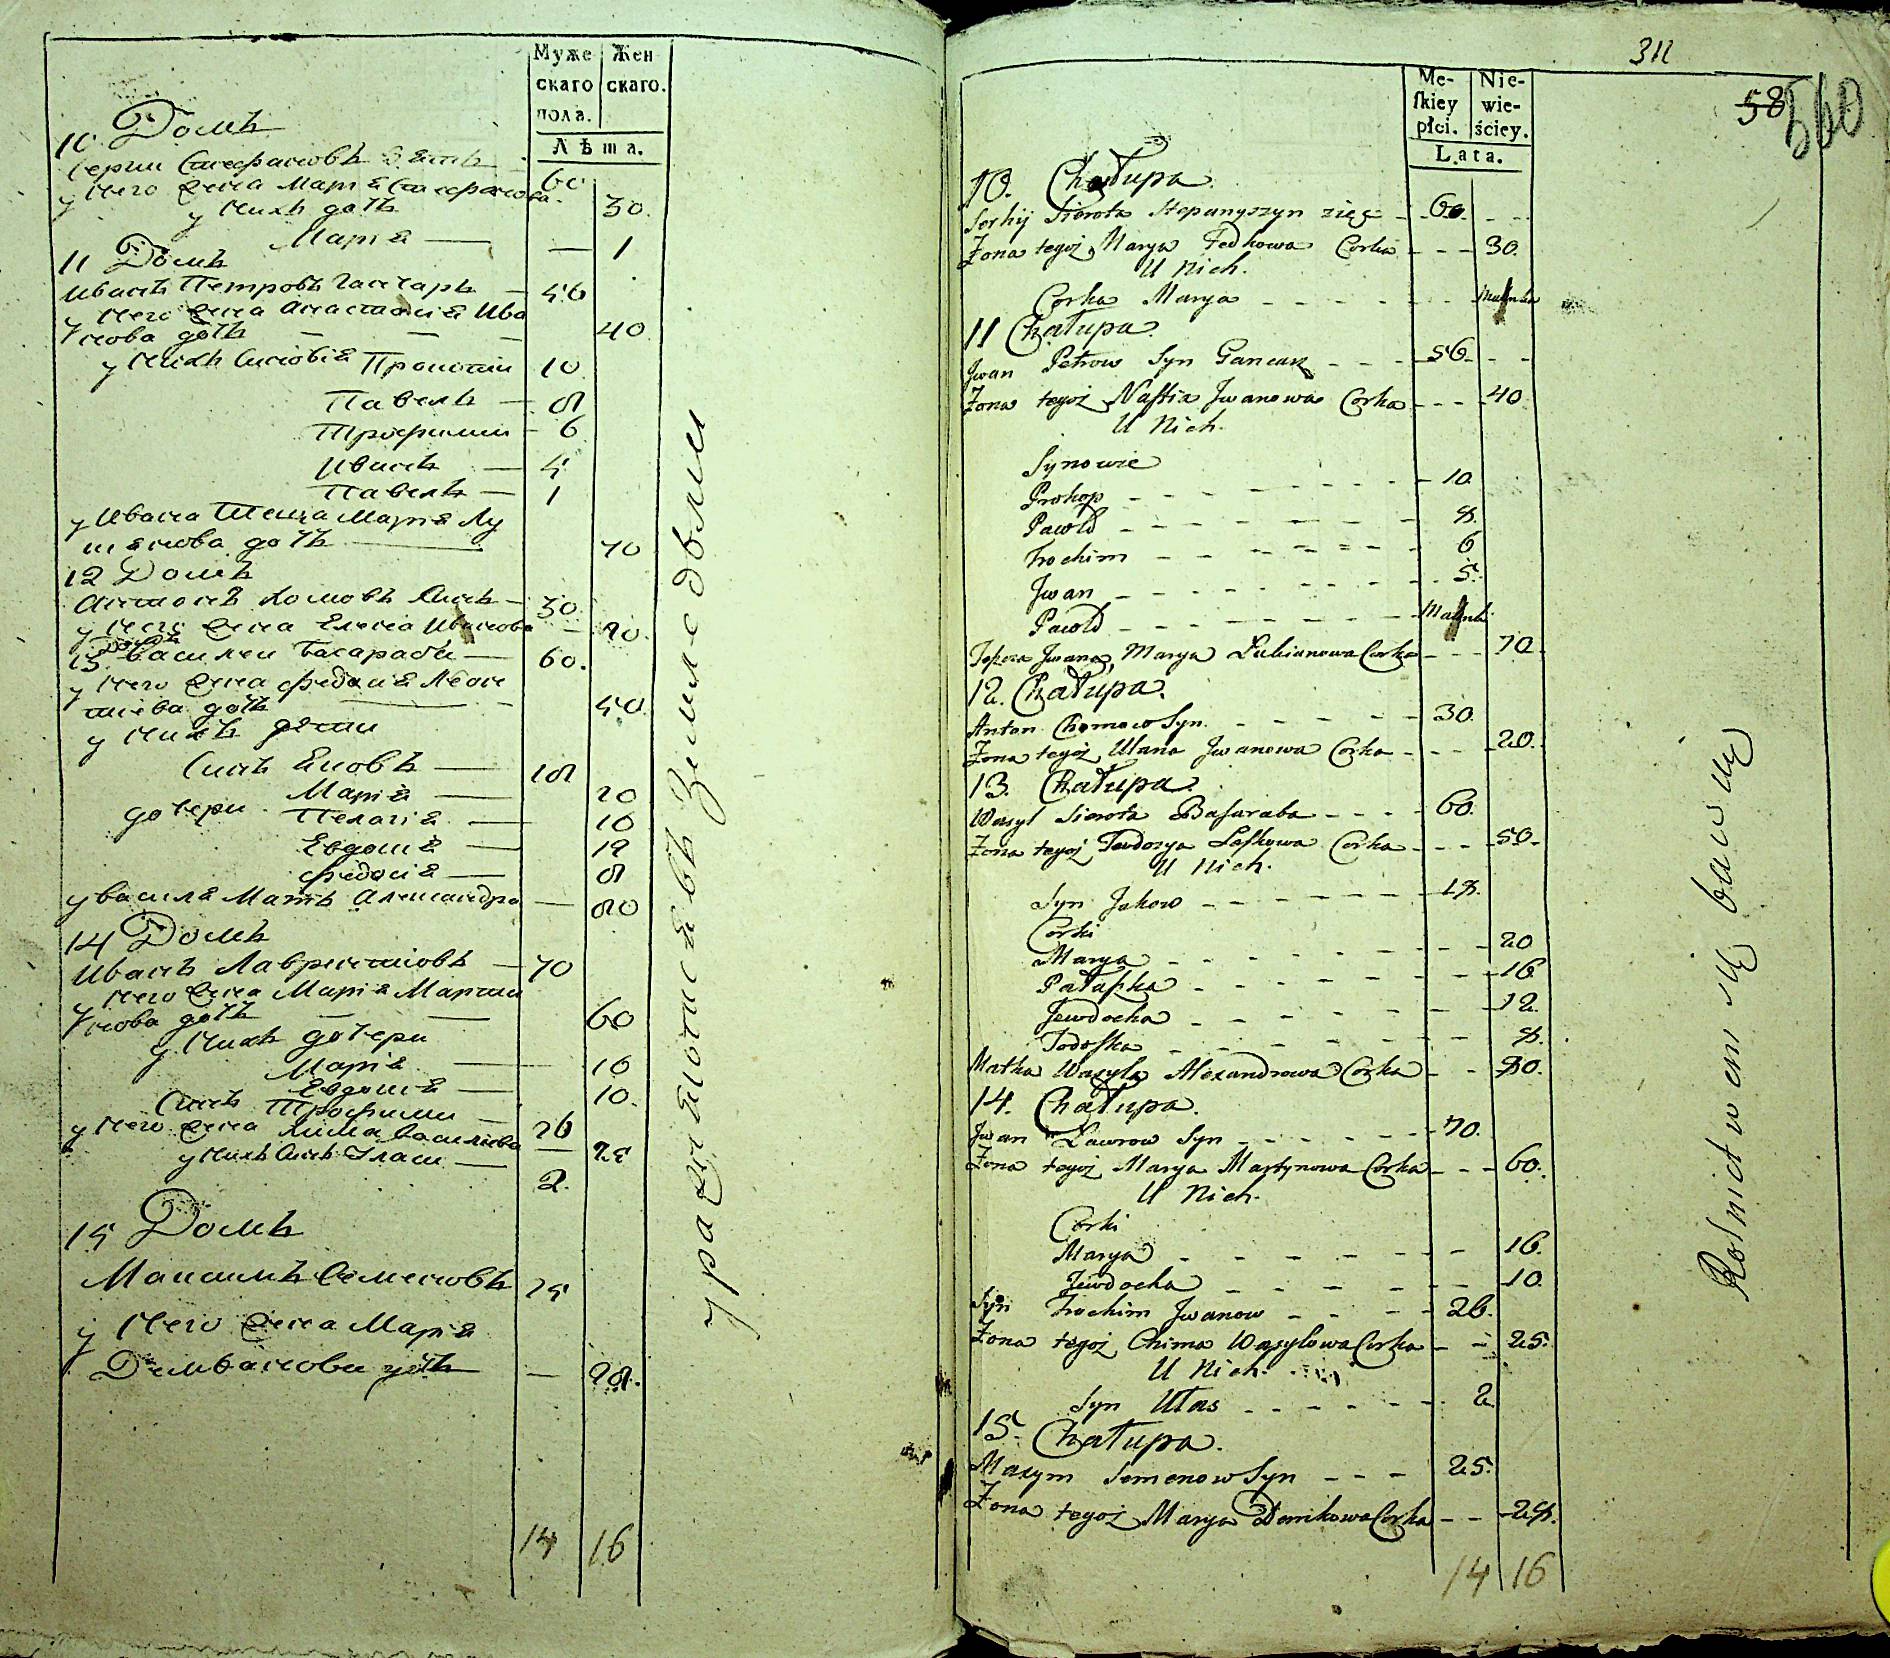 Муже
скаго
пола.
Жен
скаго.
Лѣта.
10 Домъ
Сергий Стефановъ Зять 60
у него жена Мария Стефанова 30.
у нихъ дочь
Мария — 1
11 Домъ
Иванъ Петровъ Гончаръ — 56
у него жена Анастасия Ива
нова дочь 40
у нихъ Синовія Прокопий 10
Павелъ — 8
Трофимъ — 6
Иванъ — 5
Павелъ — 1
у Ивана Теща Мария Лу
кянова дочь — 70
12 Домъ
Антонъ Хомовъ Синъ — 30
у него жена Елена Иванова — 20.
13 Домъ
Василей Басарабъ — 60.
у него жена Федосия Леон
тиева дочь — 50
у нихъ дети
Синъ Яковъ — 18
Мария — 20
дочери Пелагия — 16
Евдокия — 12
Федосия — 8
у Василя Мать Александра — 80
14 Домъ
Иванъ Лаврентиовъ — 70
у него жена Мария Марти
нова дочь — — 60
у нихъ дочери
Мария — 16
Евдокия — 10.
Синъ Трофимъ — 26
у него жена Хима Василиева — 25
у нихъ Синъ Уласъ — 2.
15 Домъ
Максимъ Семеновъ 25
у него жена Мария
Демянова дочь — 28.
14 16
упражняются въ Земледелии
311
58
560
Me-
ſkiey
płci.
Nie-
wie-
ściey.
Lata.
10. Chałupa.
Serhij Sierota Stepanyszyn zięć - 60. - -
Żona tegoż, Marya Fedkowa Corka - - - 30.
U Nich.
Corka Marya - - - - - - Malinka
11 Chałupa.
Jwan Petrow Syn Gancarz - - - 56. - -
Żona tegoż Naſtia Jwanowa Corka - - - 40
U Nich.
Synowie
Prokop - - - - - - - 10
Pawło - - - - - - - 8.
Trochim - - - - - - - 6
Jwan - - - - - - - 5.
Pawło - - - - - - - Malinki
Teſzcza Jwana, Marya Lukianowa Corka - - - 70
12. Chałupa.
Anton Chomow Syn. - - - - - 30.
Żona tegoż Ulana Jwanowa Corka - - - 20.
13. Chałupa.
Wasyl Sierota Baſaraba - - - - 60.
Żona tegoż Teodozya Leſkowa Corka - - - 50.
U Nich.
Syn Jakow - - - - - - - 18.
Corki
Marya - - - - - - - 20
Pałaſzka - - - - - - - 16
Jewdocha - - - - - - - 12.
Todoſka - - - - - - - 8.
Matka Wasyla Alexandrowa Corka - - 80.
14. Chałupa.
Jwan Lawrow Syn - - - - - 70.
Żona tegoż Marya Martynowa Corka - - - 60.
U Nich.
Corki
Marya - - - - - - - 16.
Jewdocha - - - - - - 10
Syn Trochim Jwanow - - - - 26.
Żona tegoż, Chima Wasylowa Corka - - 25.
U Nich.
Syn Ułas - - - - - - - 2.
15. Chałupa.
Maxym Semenow Syn - - - 25.
Żona tegoż Marya Demkowa Corka - - - 28.
14 16
Rolnictwem się bawią